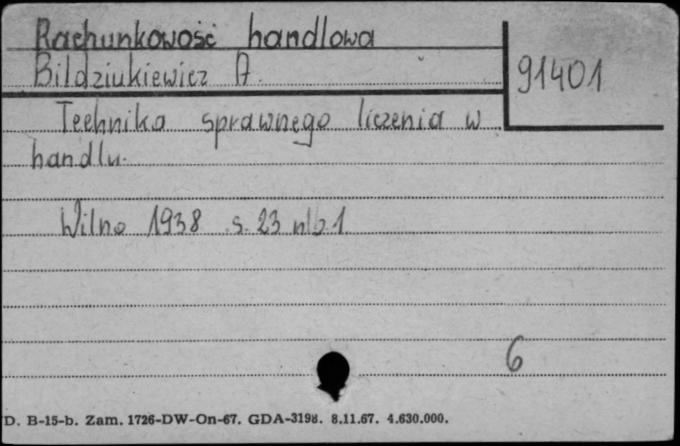 Rachunkowość handlowa
Bildziukiewicz A.
91401
Technika sprawnego liczenia w
handlu.
Wilno 1938 s. 23 nlb. 1
6
D. B-15-b. Zam. 1726-DW-On-67. GDA-3198. 8.11.67. 4.630.000.